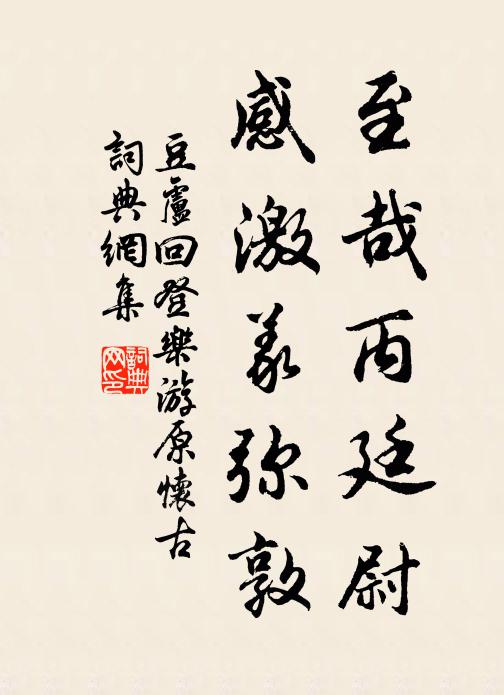 至哉丙廷尉
感激義弥敦
豆盧回登樂游原懷古
詞典網集
詞典网印